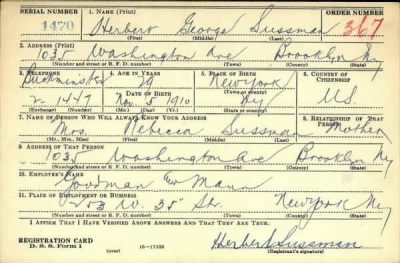 SERIAL NUMBER 1. NAME (Print) ORDER NUMBER
1470 Herbert George Sussman 367
(First) (Middle) (Last)
2. ADDRESS (Print)
1035 Washington Ave Brooklyn Ny
(Number and street or R. F. D. number) (Town) (County) (State)
3. TELEPHONE 4. AGE IN YEARS 5. PLACE OF BIRTH 6. COUNTRY OF CITIZENSHIP
29 New York
DATE OF BIRTH (Town or county)
2 1447 Nov. 5 1910 Ny U.S.
(Exchange) (Number) (Mo.) (Day) (Yr.) (State or country)
7. NAME OF PERSON WHO WILL ALWAYS KNOW YOUR ADDRESS 8. RELATIONSHIP OF THAT PERSON
Mrs. Rebecca Sussman Mother
(Mr., Mrs., Miss) (First) (Middle) (Last)
9. ADDRESS OF THAT PERSON
1035 Washington Ave Brooklyn Ny
(Number and street or R. F. D. number) (Town) (County) (State)
10. EMPLOYER'S NAME
Goodman
11. PLACE OF EMPLOYMENT OR BUSINESS
W. 35" St. New York Ny
(Number and street or R. F. D. number) (Town) (County) (State)
I AFFIRM THAT I HAVE VERIFIED ABOVE ANSWERS AND THAT THEY ARE TRUE.
REGISTRATION CARD
D. S. S. Form 1 (over) 16—17105 Herbert Sussman
(Registrant's signature)